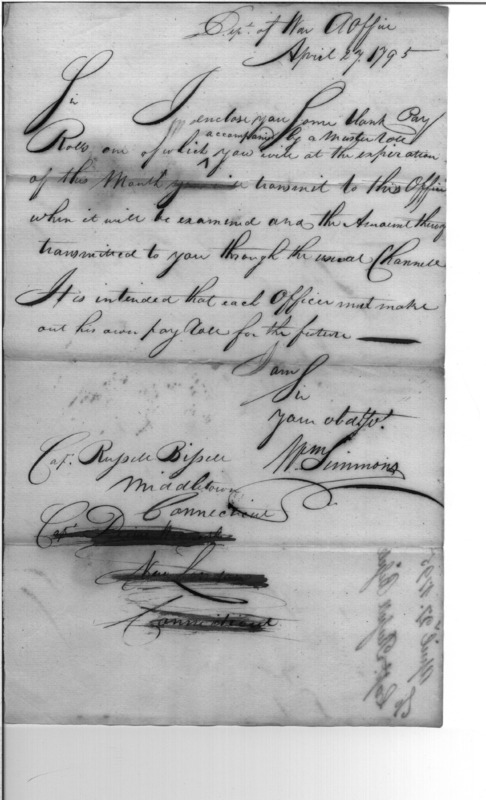 Dept. of War A Office
April 27. 1795
Sir
I enclose you some blank Pay
accompanied by a Muster Roll
Rolls one of which you will at the expiration
of this Month transmit to this Office
when it will be examined and the Amount thereof
transmitted to you through the usual Channell
It is intended that each Officer must make
out his own pay Roll for the future
I am
Sir
your obedt St.
Wm Simmons
Capt. Russell Bissell
Middletown
Connecticut
Capt
New London
Connecticut